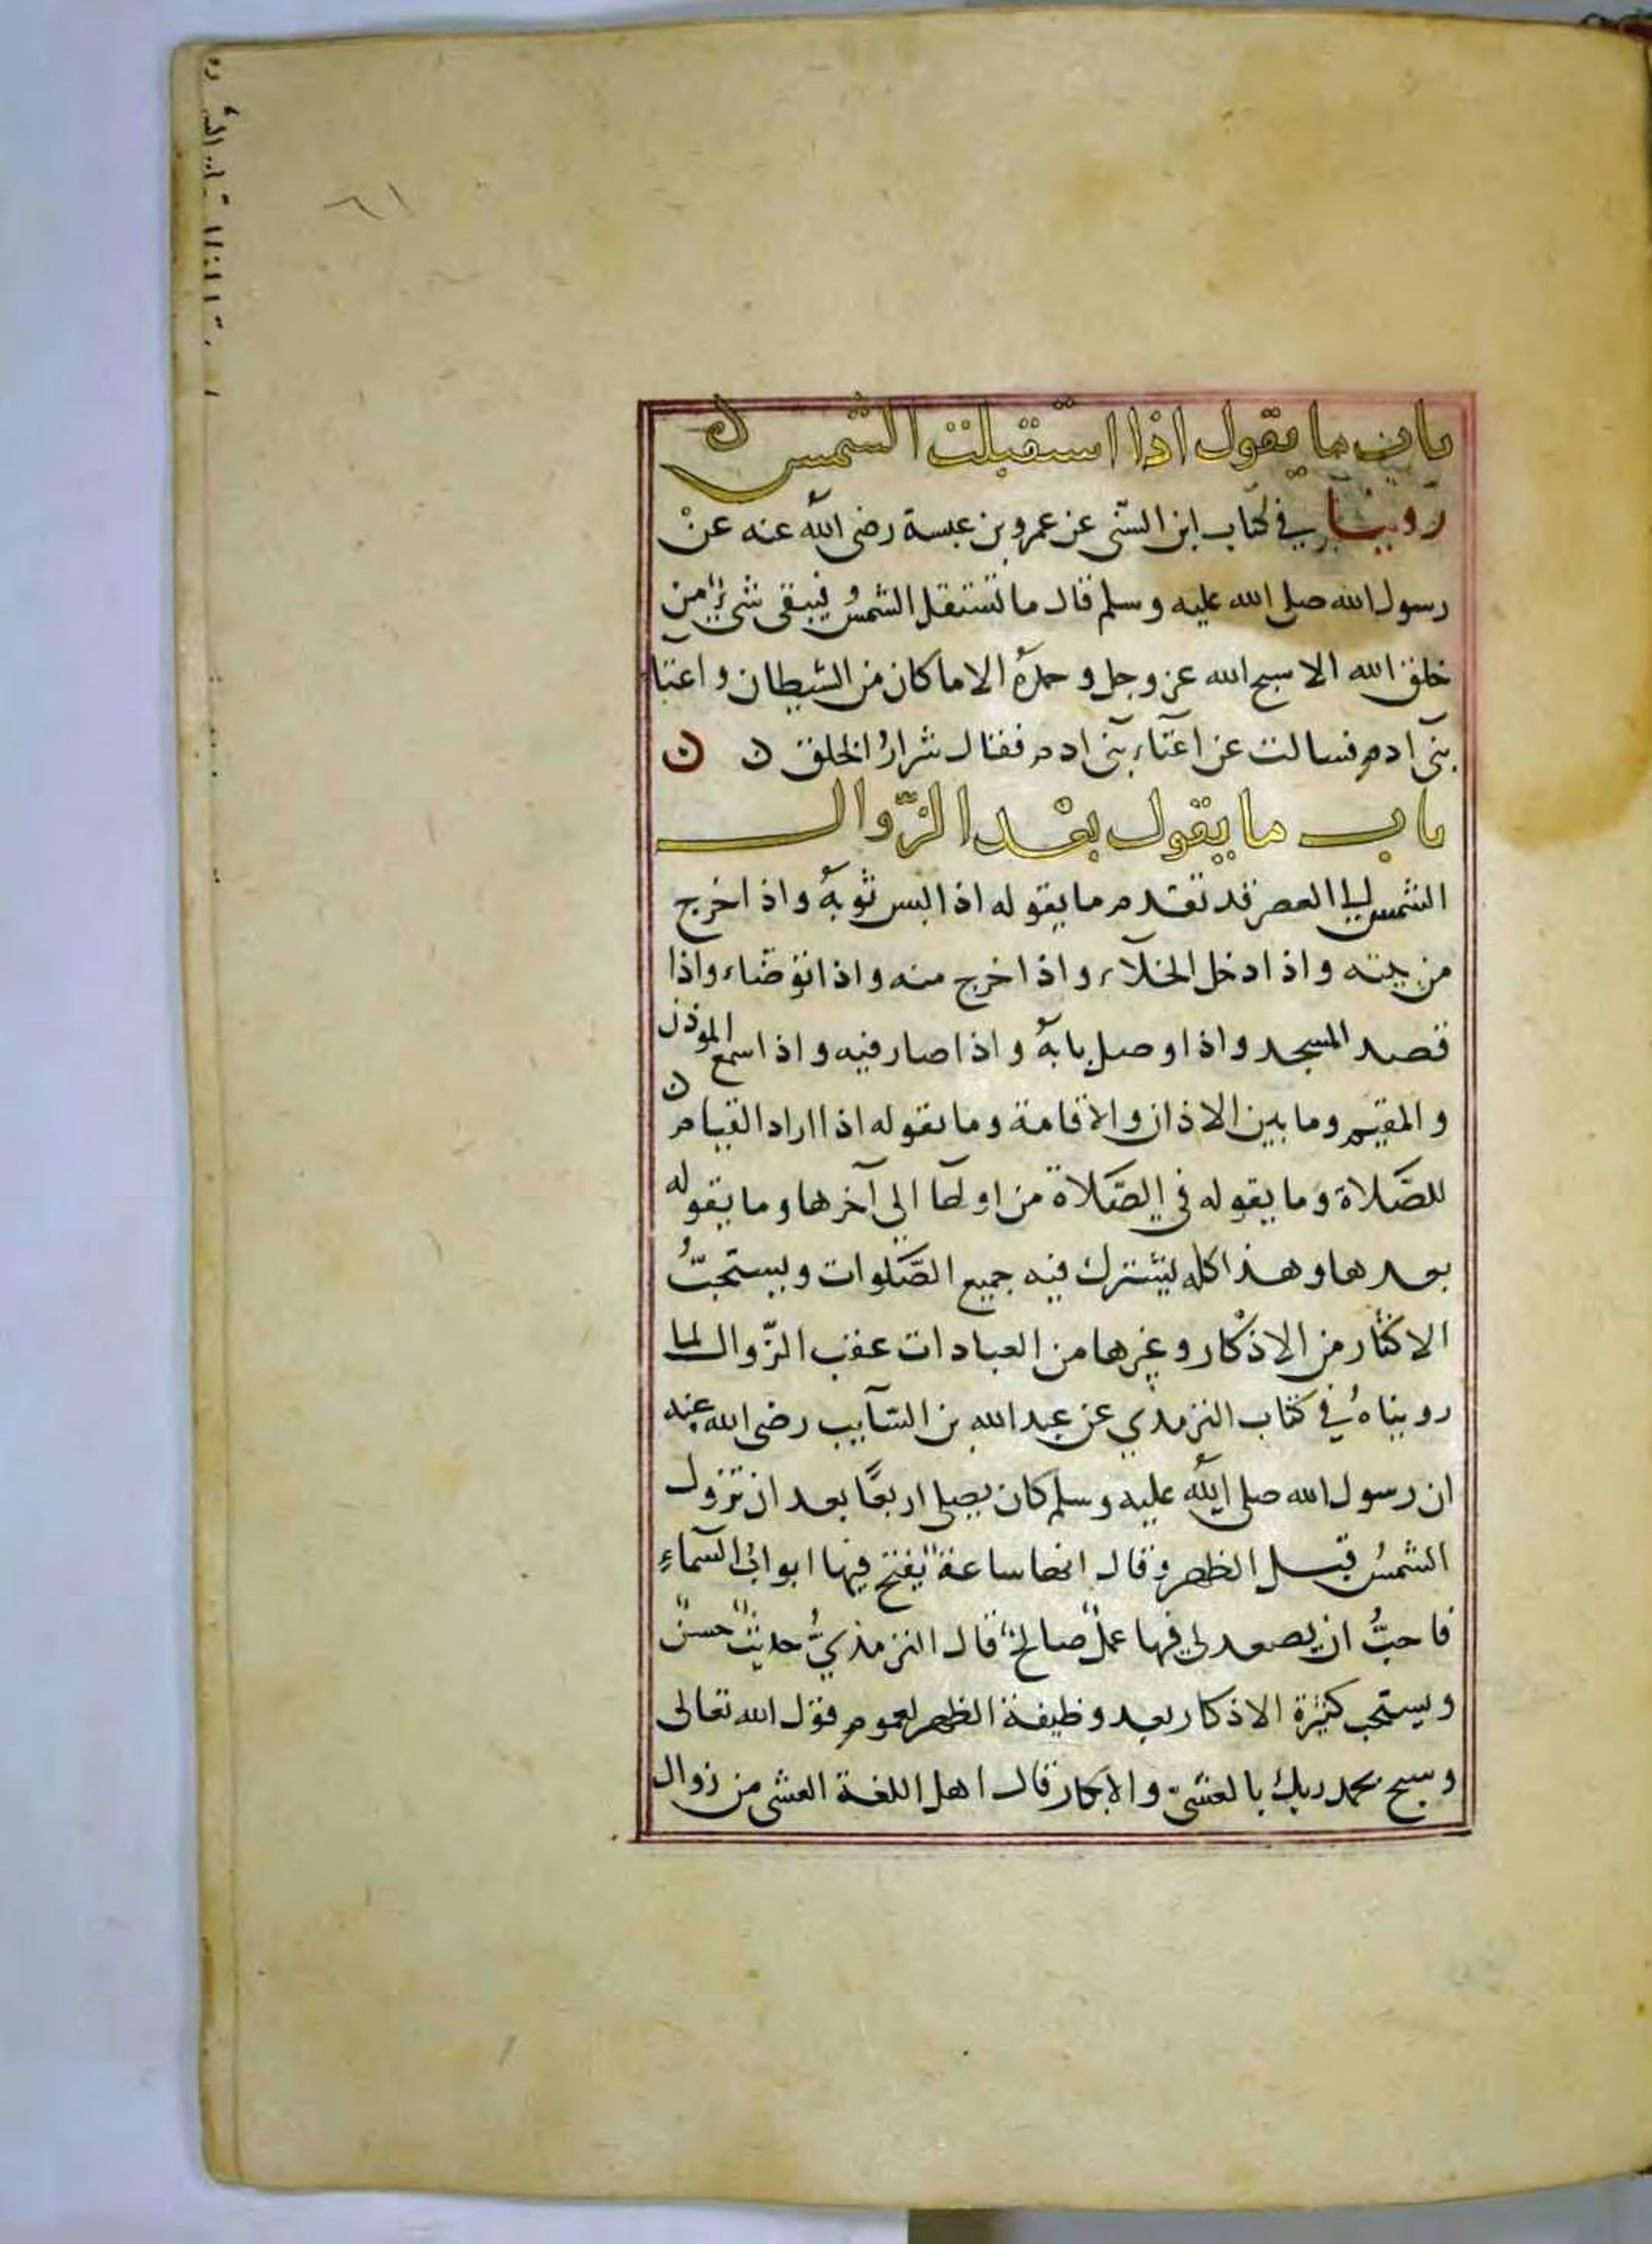 ٦١
باب ما يقول اذا استقبلت الشمس ن
روينا في كتاب ابن السني عن عمرو بن عبسة رضي الله عنه عن
رسول الله صلى الله عليه وسلم قال ما تستقل الشمسُ فيبقى شيءٌ من
خلق الله الا سبح الله عز وجل وحمدهُ الا ما كان من الشيطان واعتا
بني ادم فسالت عن اعتاء بني ادم فقال شرارُ الخلق ن ن
باب ما يقول بعْد الزّوال
الشمس الى العصر قد تقدم ما يقوله اذا لبس ثوبهُ واذا خرج
من بيته واذا دخل الخلآء واذا خرج منه واذا توضاء واذا
قصد المسجد واذا وصل بابهُ واذا صار فيه واذا سمع الموذن
والمقيم وما بين الاذان والاقامة وما يقوله اذا اراد القيام ن
للصَّلاة وما يقوله في الصَّلاة من اولها الى آخرها وما يقوله
بعدها وهذا كله يشترك فيه جميع الصَّلوات ويستحبُّ
الاكثار من الاذكار وغيرها من العبادات عقب الزّوال لما
رويناهُ في كتاب الترمذي عن عبد الله بن السَّآيب رضي الله عنه
ان رسول الله صلى الله عليه وسلم كان يصلي اربعًا بعد ان تزول
الشمسُ قبل الظهر وقال انها ساعةٌ يفتح فيها ابوابُ السَّمآءِ
فاحبُّ ان يصعد لي فيها عملٌ صالحٌ قال الترمذيُّ حديثٌ حسنٌ
ويستحب كثرة الاذكار بعد وظيفة الظهر لعموم قول الله تعالى
وسبح بحمد ربك بالعشيّ والابكار قال اهل اللغة العشي من زوال